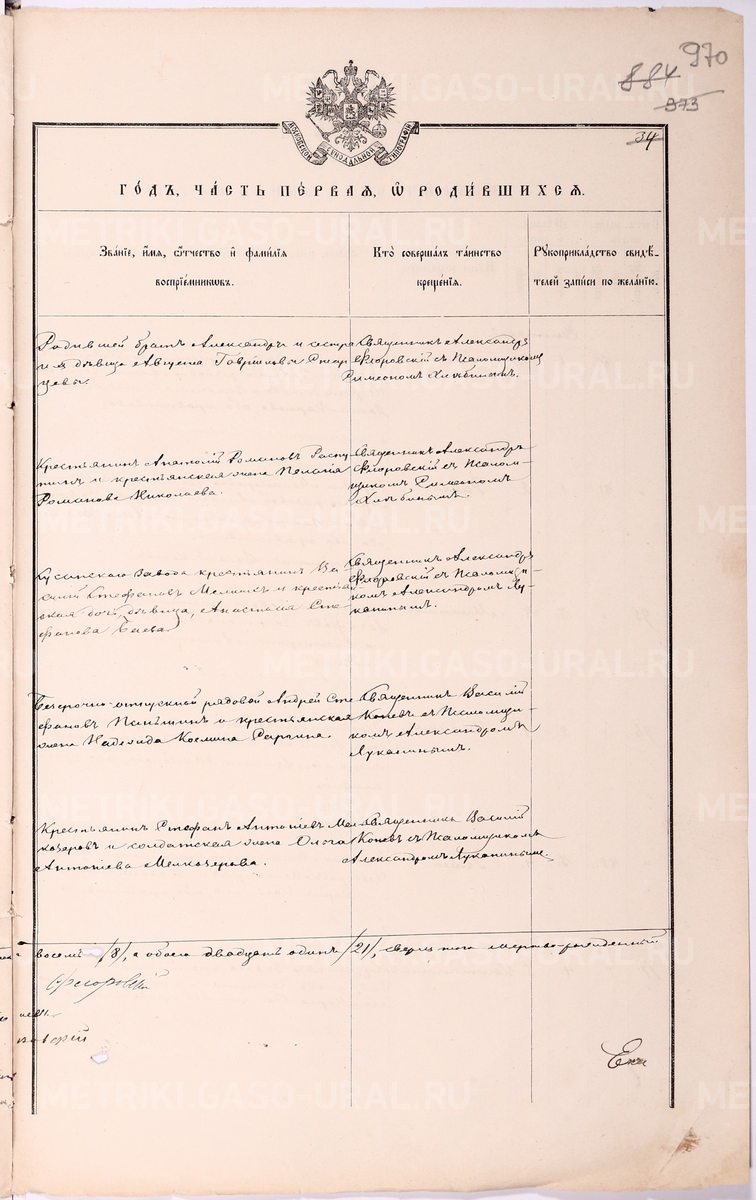 970
884
973
34
МОСКОВСКОЙ СѴНОДАЛЬНОЙ ТИПОГРАФІИ
ГО́ДЪ, ЧА́СТЬ ПЕ́РВАЯ, Ѡ҆ РОДИ́ВШИХСЯ.
Зва́нїе, и҆́мя, ѻ҆́тчество и҆ фами́лїя
воспрїе́мниковъ.
Кто̀ соверша́лъ та́инство
креще́нїя.
Рꙋкоприкла́дство свидѣ́-
телей за́писи по жела́нїю.
Родившей братъ Александръ и сестра
и я дѣвица Августа Гавріиловы
цевы.
Священникъ Александръ
Флоровскій съ Псаломщикомъ
Симеономъ Хлѣбинымъ.
Крестьянинъ Анатолій Романовъ Распу
тинъ и крестьянская жена Пелагія
Романова Николаева.
Священникъ Александръ
Флоровскій съ Псалом-
щикомъ Симеономъ
Хлѣбинымъ.
Кусинскаго Завода крестьянинъ Ва
силій Стефановъ и крестьян
ская дочь дѣвица, Анастасія Сте-
фанова Баева.
Священникъ Александръ
Флоровскій съ Псаломщи-
комъ Александромъ Лу-
канинымъ.
Безсрочно-отпускной рядовой Андрей Сте
фановъ и крестьянская
жена Надежда Космина
Священникъ Василій
Коневъ съ Псаломщи-
комъ Александромъ
Луканинымъ.
Крестьянинъ Стефанъ Антоніевъ Мел
козеровъ и солдатская жена Ольга
Антоніева Мелкозерова.
Священникъ Василій
Коневъ съ Псаломщикомъ
Александромъ Луканинымъ.
восемь /8/, а обоего двадцать одинъ /21/, сверхъ того мертво-рожденный
Флоровскій